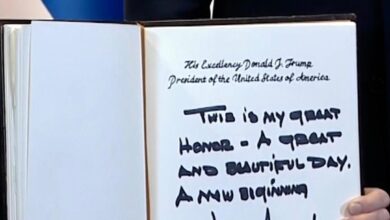 His Excellency Donald J. Trump
President of the United States of America
THIS IS MY GREAT
HONOR - A GREAT
AND BEAUTIFUL DAY.
A NEW BEGINNING